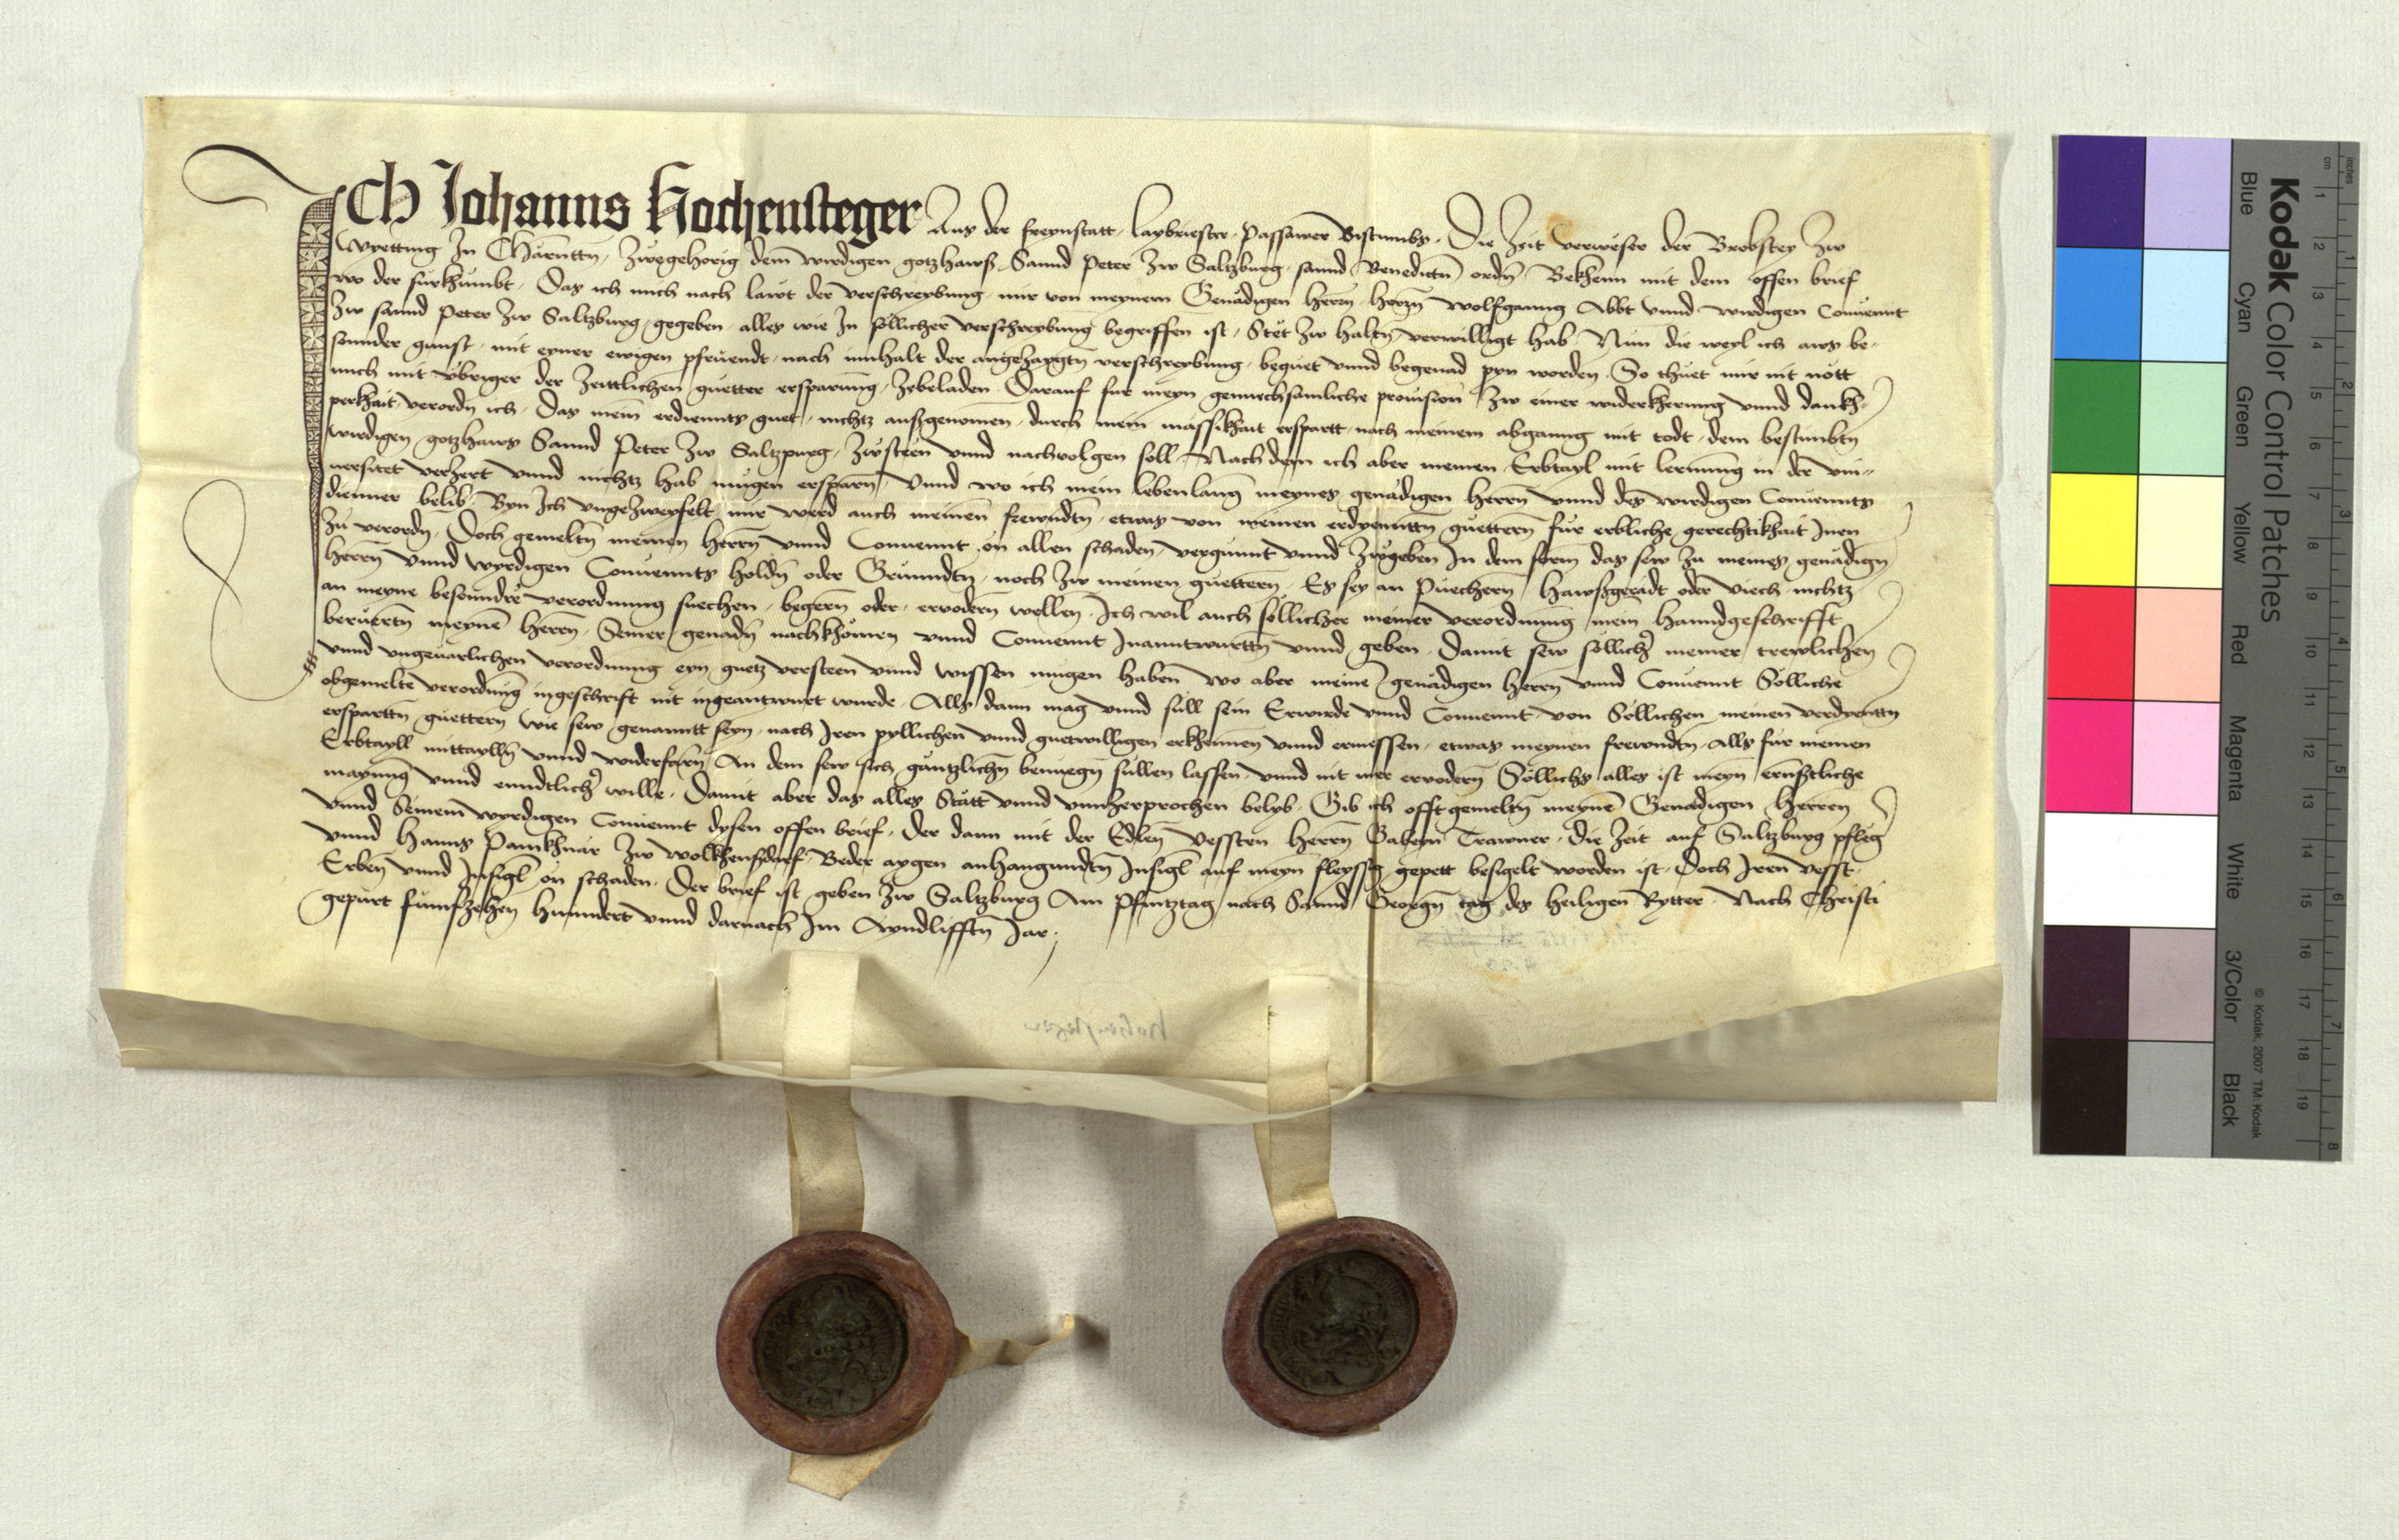 Ich Johanns Hochensteger Aus der freynstatt, laybriester, Passawer Bistumbs, Die zeit verweser der Brobstey zw
Wyetting In Chärnttn, zwegehorig dem wirdigen gotzhawß Sannd Peter zw Saltzburg, sannd Benedictn ordn, Bekhenn mit dem offen brief
wo der fürkhumbt, Das ich mich nach lawt der verschreybung mir von meynem Genädigen herrn, herrn wolfganng Abbt vnnd wirdigen Conuent
zw sannd Peter zw Saltzburg, gegeben, alles wie In söllicher verschreybung begriffen ist, Stët zw haltn, verwilligt hab. Nun die weyl ich aws be-
sonnder gunst, mit eyner ewigen pfruendt, nach innhalt der angezaygtn verschreybung, beguet vnnd begenad pyn worden, So thuet mir nit nott
mich mit vbriger der zeittlichen guetter ersparung, zebeladen Darauf für meyn genuchsamliche prouision zw einer widerkherung vnnd dankh-
perkhait, verordn ich, Das mein erdiennts guet, nichtz außgenomen, durch mein mässikhait erspartt, nach meinem abganng mit todt, dem bestimbtn
wirdigen gotzhaws Sannd Peter zw Saltzpurg, zwsteen vnnd nachvolgen soll, Nach dem ich aber meinen Erbtayl mit lernung in der vni-
uersitet verzert vnnd nichtz hab mügen ersparn, Vnnd wo ich mein lebenlang meynes genädigen herrn vnnd des wirdigen Conuennts
dienner belib, Byn Ich vngezweyfelt, mir werd auch meinen frewndtn, etwas von meinen erdyenttn guettern für erbliche gerechtikhait Inen
zü verordn, Doch gemeltn meinen herrn vnnd Conuennt, on allen schaden vergünnt vnnd zwgeben In dem form das sew zu meines genädign
herrn vnnd wyrdigen Conuennts holdn oder Grunndtn, noch zw meinen guettern, Es sey an Püechern, hawßgerädt oder viech, nichtz
an meyne besonndre verordnung suechen, begern oder, ervodern wellen, Ich wil auch söllicher meiner verordnung mein hanndgeschrifft
berüertn meynē herrn, Seiner genadn nachkhomen vnnd Conuennt Inanntwurttn vnnd geben, Damit sew söllicher meiner trewlichen
vnnd vngeuarlichen verordnung eyn guetz versteen vnnd wissen mügen haben, wo aber meinē genädigen herrn vnnd Conuennt Sölliche
obgemelte verordnung ingeschrift nit ingeantwurt wurde, Alls dann mag vnnd sull sein Erwirde vnnd Conuennt, von Söllichen meinen verdyenttn
erspartten guettern wie sew genanntt seyn, nach Iren pyllichen vnnd guetwilligen erkhennen vnnd ermessen, etwas meynen frewndtn, alls für meinen
Erbtayll mittaylln vnnd widerfarn, An dem sew sich gäntzlichn benuegn sullen lassen, vnnd nit mer ervodern Söllichs alles ist meyn ernstliche
maynung vnnd enndtlicher wille, Damit aber das alles Stätt vnnd vnnzerprochen belyb, Gib ich offt gemeltn meynē Genädigen herren
vnnd Seinem wyrdigen Conuennt dysen offen brief, Der dann mit der Edlen Vessten herrn Gabein Trawner, Die zeit auf Saltzburg pfleg
vnnd Hanns Pannkhnär zw wolkhenßdorf, Beder aygen anhangundtn Insigl auf meyn fleyssig gepett besigelt worden ist, Doch Iren vesst-
Erben vnnd Insigl on schaden, Der brief ist geben zw Saltzburg Am Pfintztag nach Sannd Georgn tag des heiligen Rytter, Nach Christi
gepurt fünfzehen hunndert vnnd darnach Im Ayndlifftn Jar.
Kodak Color Control Patches
Blue Cyan Green Yellow Red Magenta White 3/Color Black
© Kodak, 2007 TM: Kodak
inches 1 2 3 4 5 6 7 8
cm 1 2 3 4 5 6 7 8 9 10 11 12 13 14 15 16 17 18 19